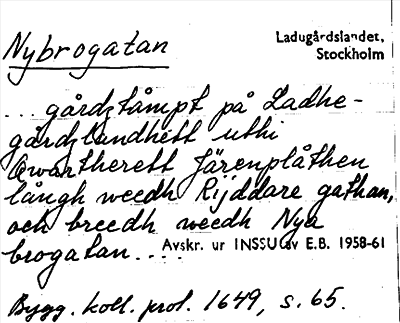 Nybrogatan
Ladugårdslandet,
Stockholm
... gårdztåmpt på Ladhe-
gårdzlandhett uthi
Qwartherett Järenplåthen
långh weedh Rijddare gathan,
och breedh weedh Nya
brogatan....
Avskr. ur INSSU av E.B. 1958-61
Bygg. koll. prot. 1649, s. 65.